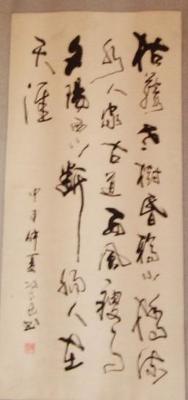 枯藤老树昏鸦小橋流
水人家古道西風瘦馬
夕陽西下斷腸人在
天涯
甲申仲夏